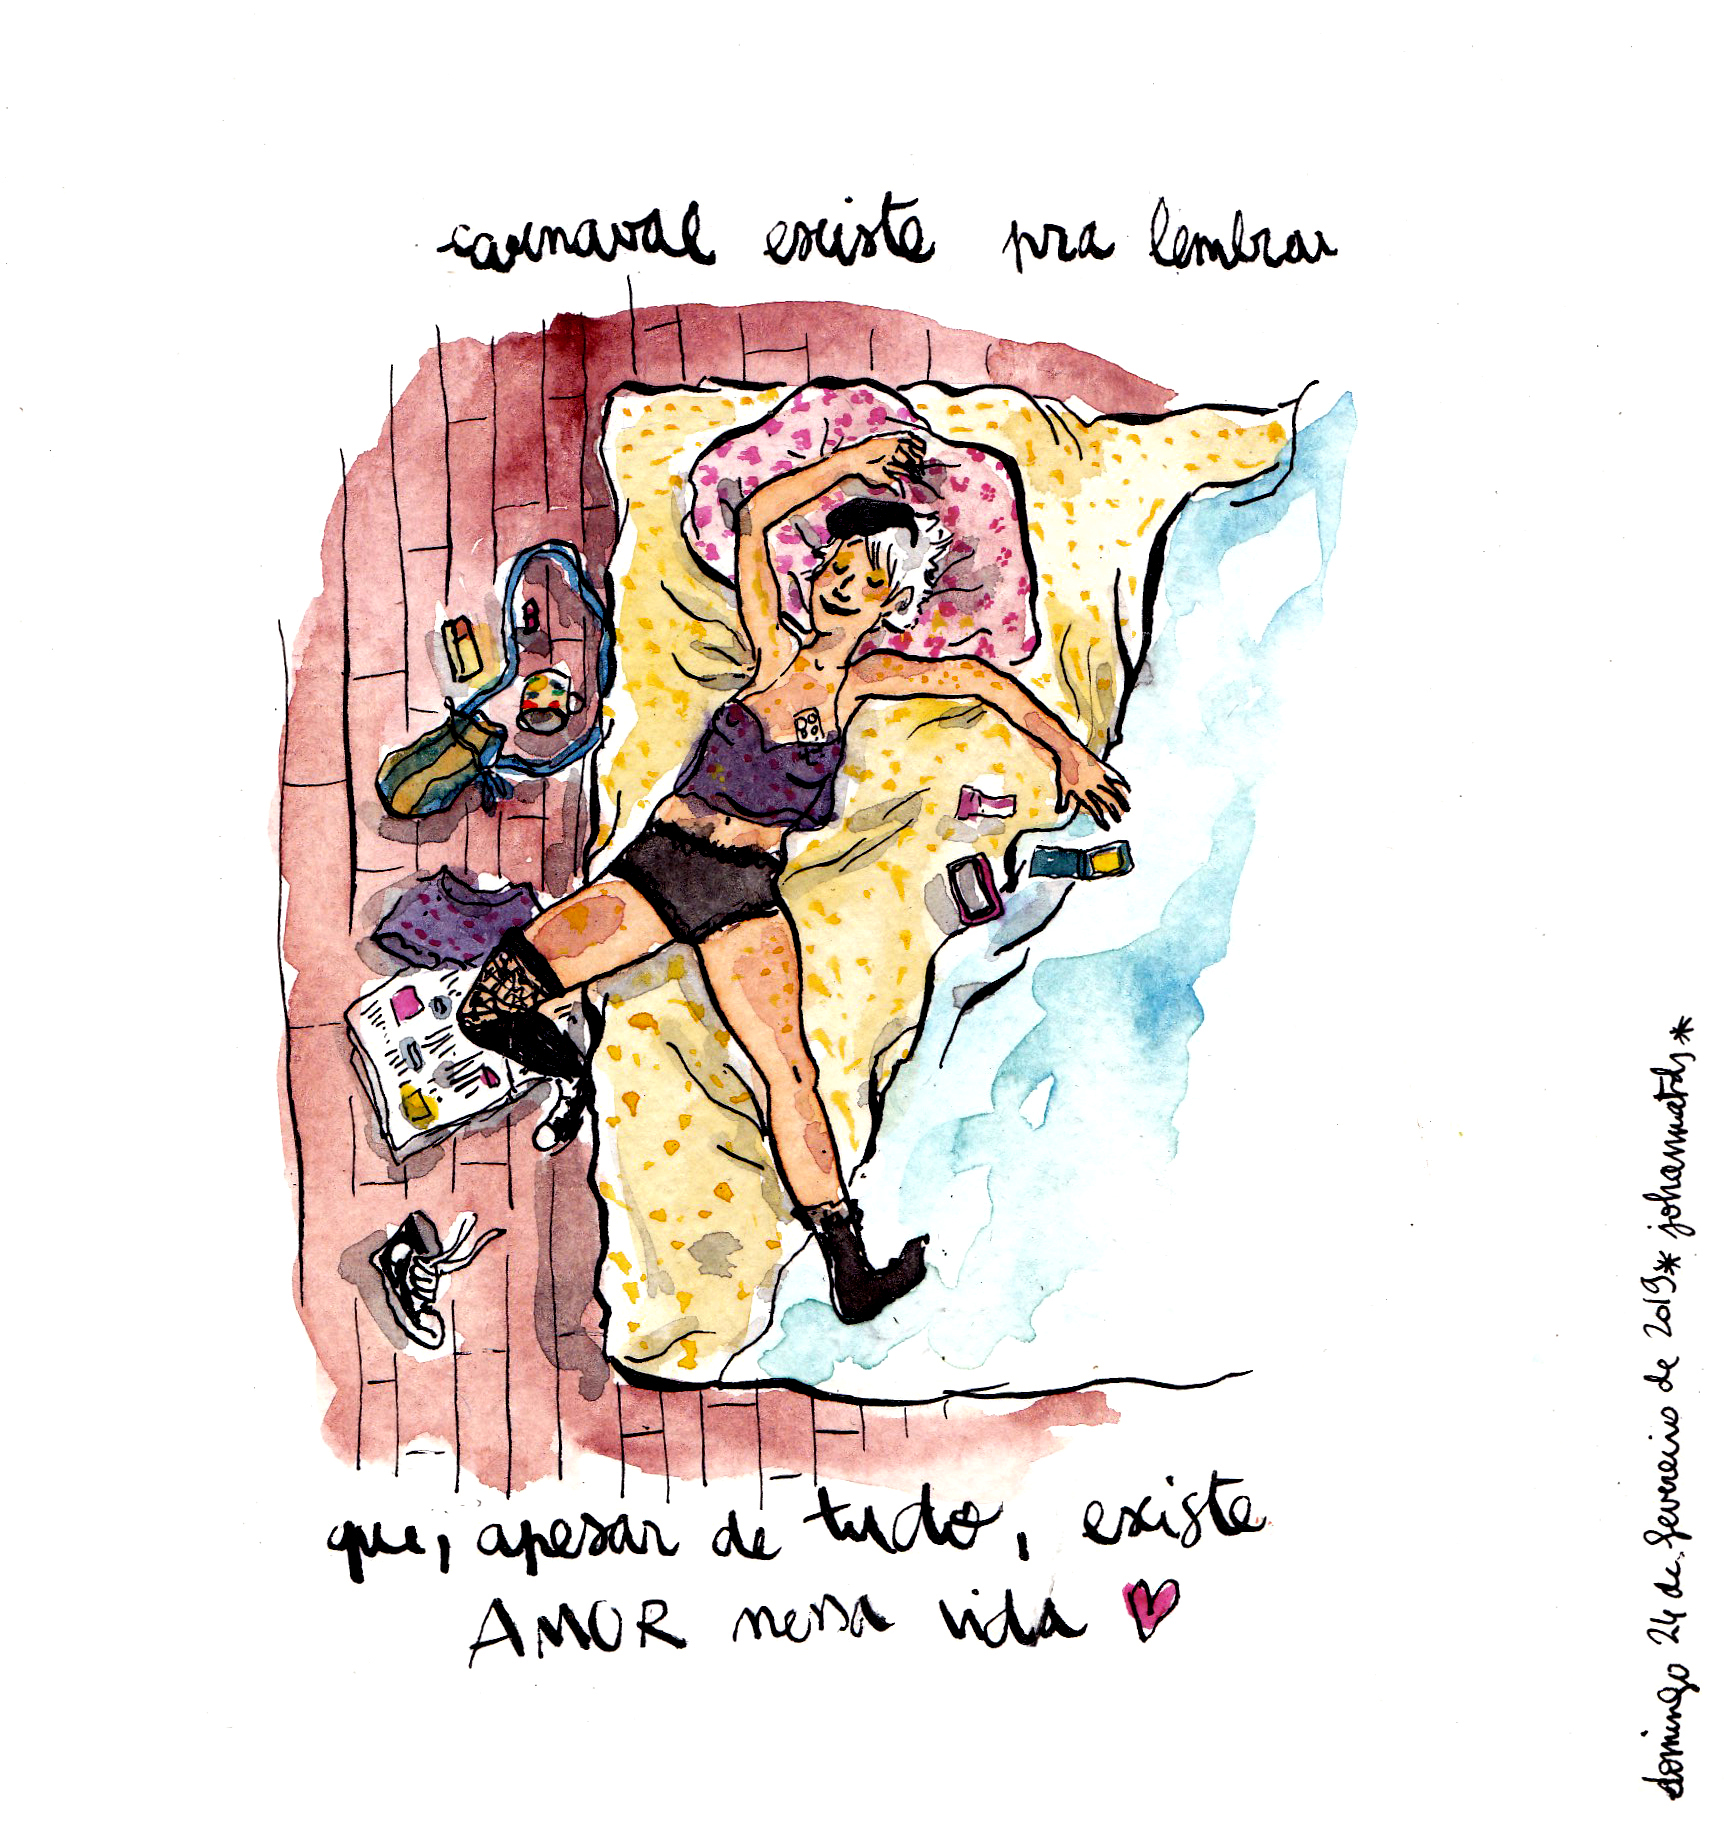 carnaval existe pra lembrar
que, apesar de tudo, existe
AMOR nessa vida
domingo 24 de fevereiro de 2019* johannathy*